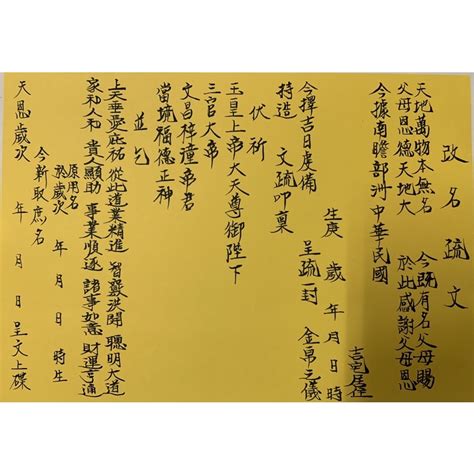 改名疏文
天地萬物本無名 今既有名父母賜
父母恩德天地大 於此感謝父母恩
今據南瞻部洲中華民國
吉宅居住
生庚 歲 年 月 日 時
今擇吉日虔備 呈疏一封 金帛之儀
特造 文疏叩稟
伏祈
玉皇上帝大天尊御陛下
三官大帝
文昌梓潼帝君
當境福德正神
並乞
上天垂愛庇祐 從此道業精進 智慧洪開 聰明大道
家和人和 貴人顯助 事業順遂 諸事如意 財運亨通
原用名
於歲次 年 月 日 時生
今新取庶名
天恩歲次 年 月 日 呈文上碟